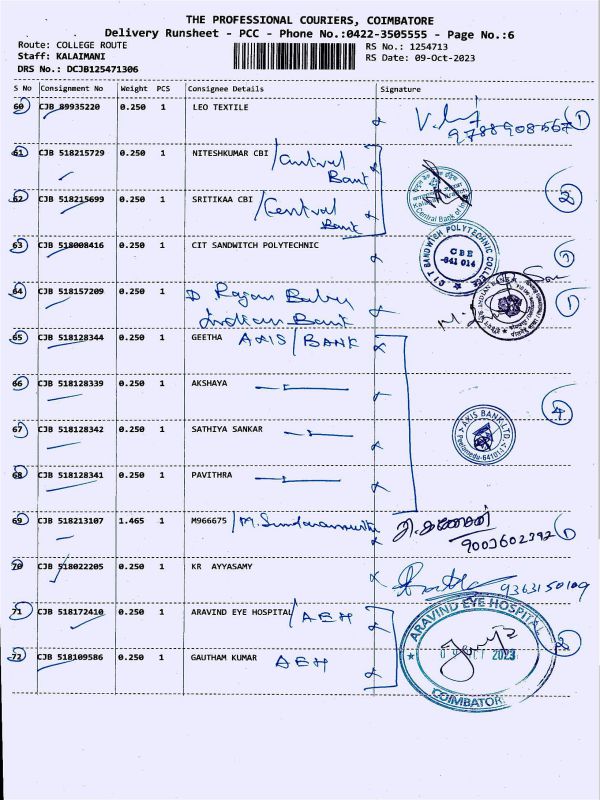 THE PROFESSIONAL COURIERS, COIMBATORE
Delivery Runsheet - PCC - Phone No.:0422-3505555 - Page No.:6
Route: COLLEGE ROUTE RS No.: 1254713
Staff: KALAIMANI RS Date: 09-Oct-2023
DRS No.: DCJB125471306
S No Consignment No Weight PCS Consignee Details Signature
60 CJB 89935220 0.250 1 LEO TEXTILE 9788908567 1
61 CJB 518215729 0.250 1 NITESHKUMAR CBI / Central
Bank
62 CJB 518215699 0.250 1 SRITIKAA CBI / Central 2
Bank
63 CJB 518008416 0.250 1 CIT SANDWITCH POLYTECHNIC CIT SANDWITCH POLYTECHNIC COLLEGE CBE -641 014 1
64 CJB 518157209 0.250 1 D Rajan Babu INDIAN BANK 1
Indian Bank
65 CJB 518128344 0.250 1 GEETHA AXIS / BANK
66 CJB 518128339 0.250 1 AKSHAYA
67 CJB 518128342 0.250 1 SATHIYA SANKAR AXIS BANK LTD. 4
68 CJB 518128341 0.250 1 PAVITHRA
69 CJB 518213107 1.465 1 M966675 / M. Sundaramurthi 9003602392 1
70 CJB 518022205 0.250 1 KR AYYASAMY 9363150109
71 CJB 518172410 0.250 1 ARAVIND EYE HOSPITAL / AEH ARAVIND EYE HOSPITAL
72 CJB 518109586 0.250 1 GAUTHAM KUMAR AEH 2023
COIMBATORE